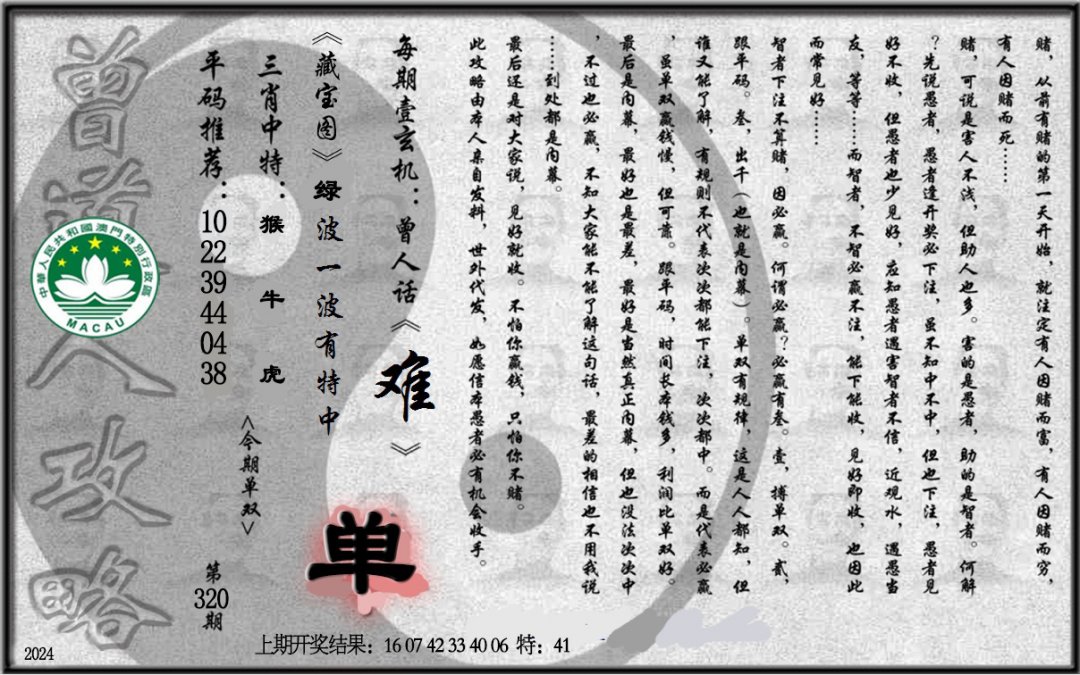 赌，从前有赌的第一天开始，就注定有人因赌而富，有人因赌而穷，
有人因赌而死……
赌，可说是害人不浅，但助人也多。害的是愚者，助的是智者。何解
？先说愚者，愚者逢开奖必下注，虽不知中不中，但也下注，愚者见
好不收，但愚者也少见好，应知愚者遇害智者不信，近观水，遇愚当
友，等等……而智者，不智必赢不注，能下能收，见好即收，也因此
而常见好……
智者下注不算赌，因必赢。何谓必赢？必赢有叁。壹，搏单双。贰，
跟单码。叁，出千（也就是内幕）。单双有规律，这是人人都知，但
谁又能了解，有规则不代表次次都能下注，次次都中。而是代表必赢
，虽单双赢钱慢，但可靠。跟单码，时间长本钱多，利润比单双好。
最后是内幕，最好也是最差，最好是当然真正内幕，但也没法次次中
，不过也必赢，不知大家能不能了解这句话，最差的相信也不用我说
……到处都是内幕。
最后还是对大家说，见好就收。不怕你赢钱，只怕你不赌。
此攻略由本人亲自发料，世外代发，如愿信本愚者必有机会收手。
每期壹玄机：曾人话《难》
《藏宝图》绿波一波有特中
单
三肖中特：猴 牛 虎
<今期单双>
平码推荐：10 22 39 44 04 38
第320期
曾道人攻略
中華人民共和國澳門特別行政區
MACAU
上期开奖结果：16 07 42 33 40 06 特：41
2024